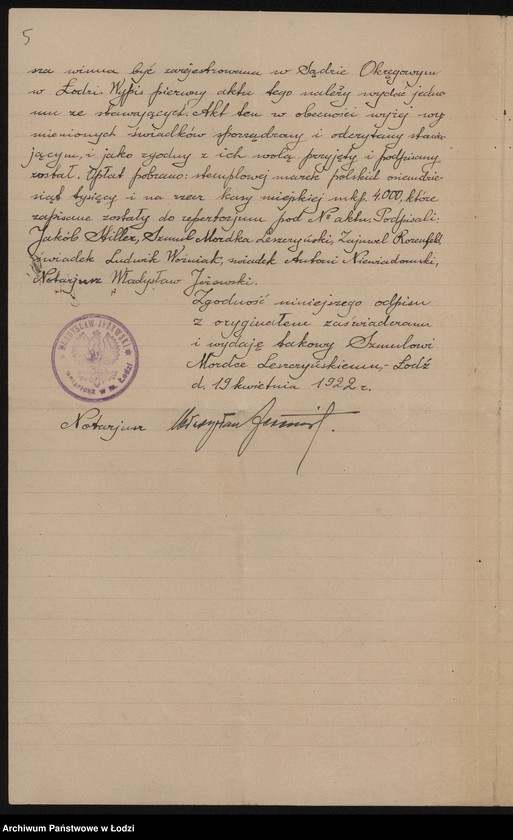 5
sza winna być zarejestrowana w Sądzie Okręgowym
w Łodzi. Wypis pierwszy aktu tego należy wydać jedne
mu ze stawających. Akt ten w obecności wyżej wy
mienionych świadków sporządzony i odczytany stawa
jącym, i jako zgodny z ich wolą przyjęty i podpisany
został. Opłat pobrano: stemplowej marek polskich osiemdzie-
siąt tysięcy i na rzecz kasy miejskiej mkp. 4.000, które
zapisane zostały do repertorjum pod № aktu. Podpisali:
Jakób Hiller, Szmul Mordka Leszczyński, Zajnwel Rozenfeld,
świadek Ludwik Woźniak, świadek Antoni Niewiadomski,
Notarjusz Władysław Jeżewski.
Zgodność niniejszego odpisu
z oryginałem zaświadczam
i wydaję takowy Szmulowi
Mordce Leszczyńskiemu,- Łódź
d. 19 kwietnia 1922 r.
WŁADYSŁAW JEŻEWSKI
NOTARJUSZ W M. ŁODZI
Notarjusz Władysław Jeżewski.
Archiwum Państwowe w Łodzi